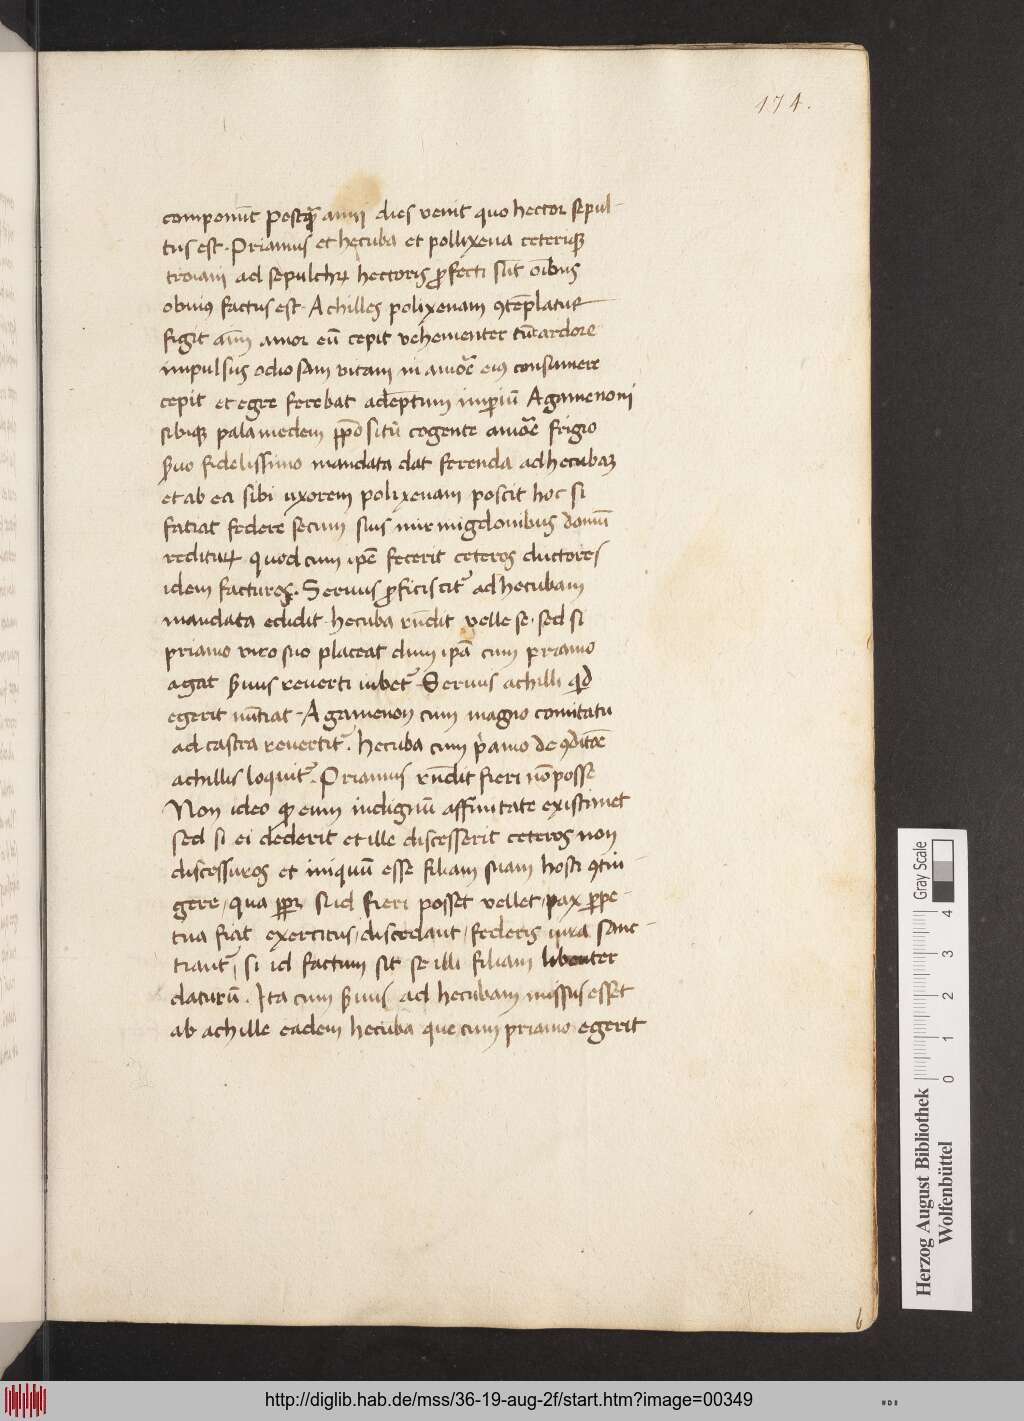 174.
componūt postq̄ȝ anni dies venit quo hector sepul-
tus est. Priamus et hecuba et pollixena ceteriqꝫ
troiani ad sepulchꝝ hectoris ꝓfecti sūt oībus
obuiꝰ factus est. Achilles polixenam ꝯtēplatur
figit aīm amor eū cepit vehementer tūc ardore
impulsus odiosam vitam in amore eiꝰ consumere
cepit et egre ferebat ademptum imperiū Agamenoni
sibiqꝫ palamedem p̄positū cogente amore frigio
s̄uo fidelissimo mandata dat ferenda ad hecubaꝫ
et ab ea sibi uxorem polixenam poscit hoc si
fatiat federe secum suis mirmigdonibus domū
rediturꝝ quod cum ip̄e fecerit ceteros ductores
idem facturos. Seruus ꝓficiscitʳ ad hecubam
mandata edidit. hecuba rn̄dit velle se. sed si
priamo viro suo placeat dum ip̄a cum priamo
agat s̄uus reuerti iubetʳ. Seruus achilli qd
egerit nūtiat. Agamenon cum magno comitatu
ad castra reuertitʳ. hecuba cum pⁱamo de ꝯditōe
achillis loquitʳ. Priamus rn̄dit fieri nō posse
Non ideo ꝙ eum indignū affinitate existimet
sed si ei dederit et ille discesserit ceteros non
discessuros et iniquū esse filiam suam hosti ꝯiū
gere, qua ꝓpt si id fieri posset vellet, pax ꝑpe-
tua fiat exercitus, discedant, federis iura sanc-
tiantʳ, si id factum sit se illi filiam libenter
daturū. Ita cum s̄uus ad hecubam missus esset
ab achille eadem hecuba que cum priamo egerit
6
Gray Scale
0 1 2 3 4
Herzog August Bibliothek
Wolfenbüttel
http://diglib.hab.de/mss/36-19-aug-2f/start.htm?image=00349